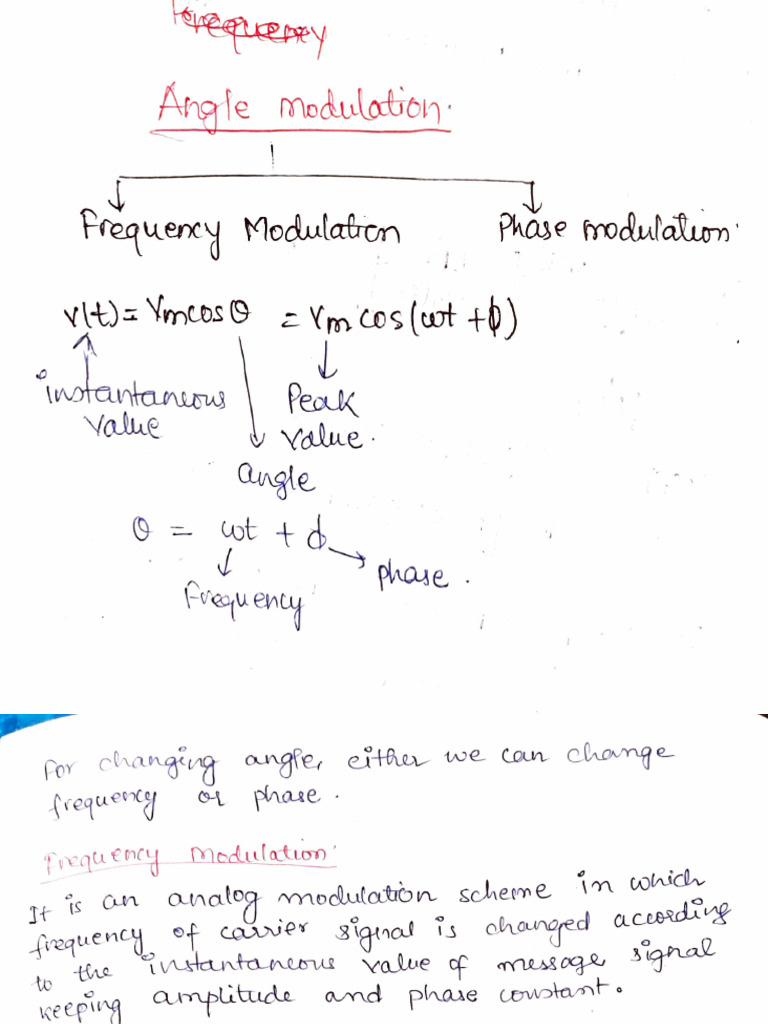 Angle modulation.
Frequency Modulation Phase modulation.
v(t) = Vm cos θ = Vm cos (ωt + ϕ)
instantaneous value
Peak value.
angle
θ = ωt + ϕ
phase.
Frequency
For changing angle, either we can change
frequency or phase.
Frequency Modulation:
It is an analog modulation scheme in which
frequency of carrier signal is changed according
to the instantaneous value of message signal
keeping amplitude and phase constant.